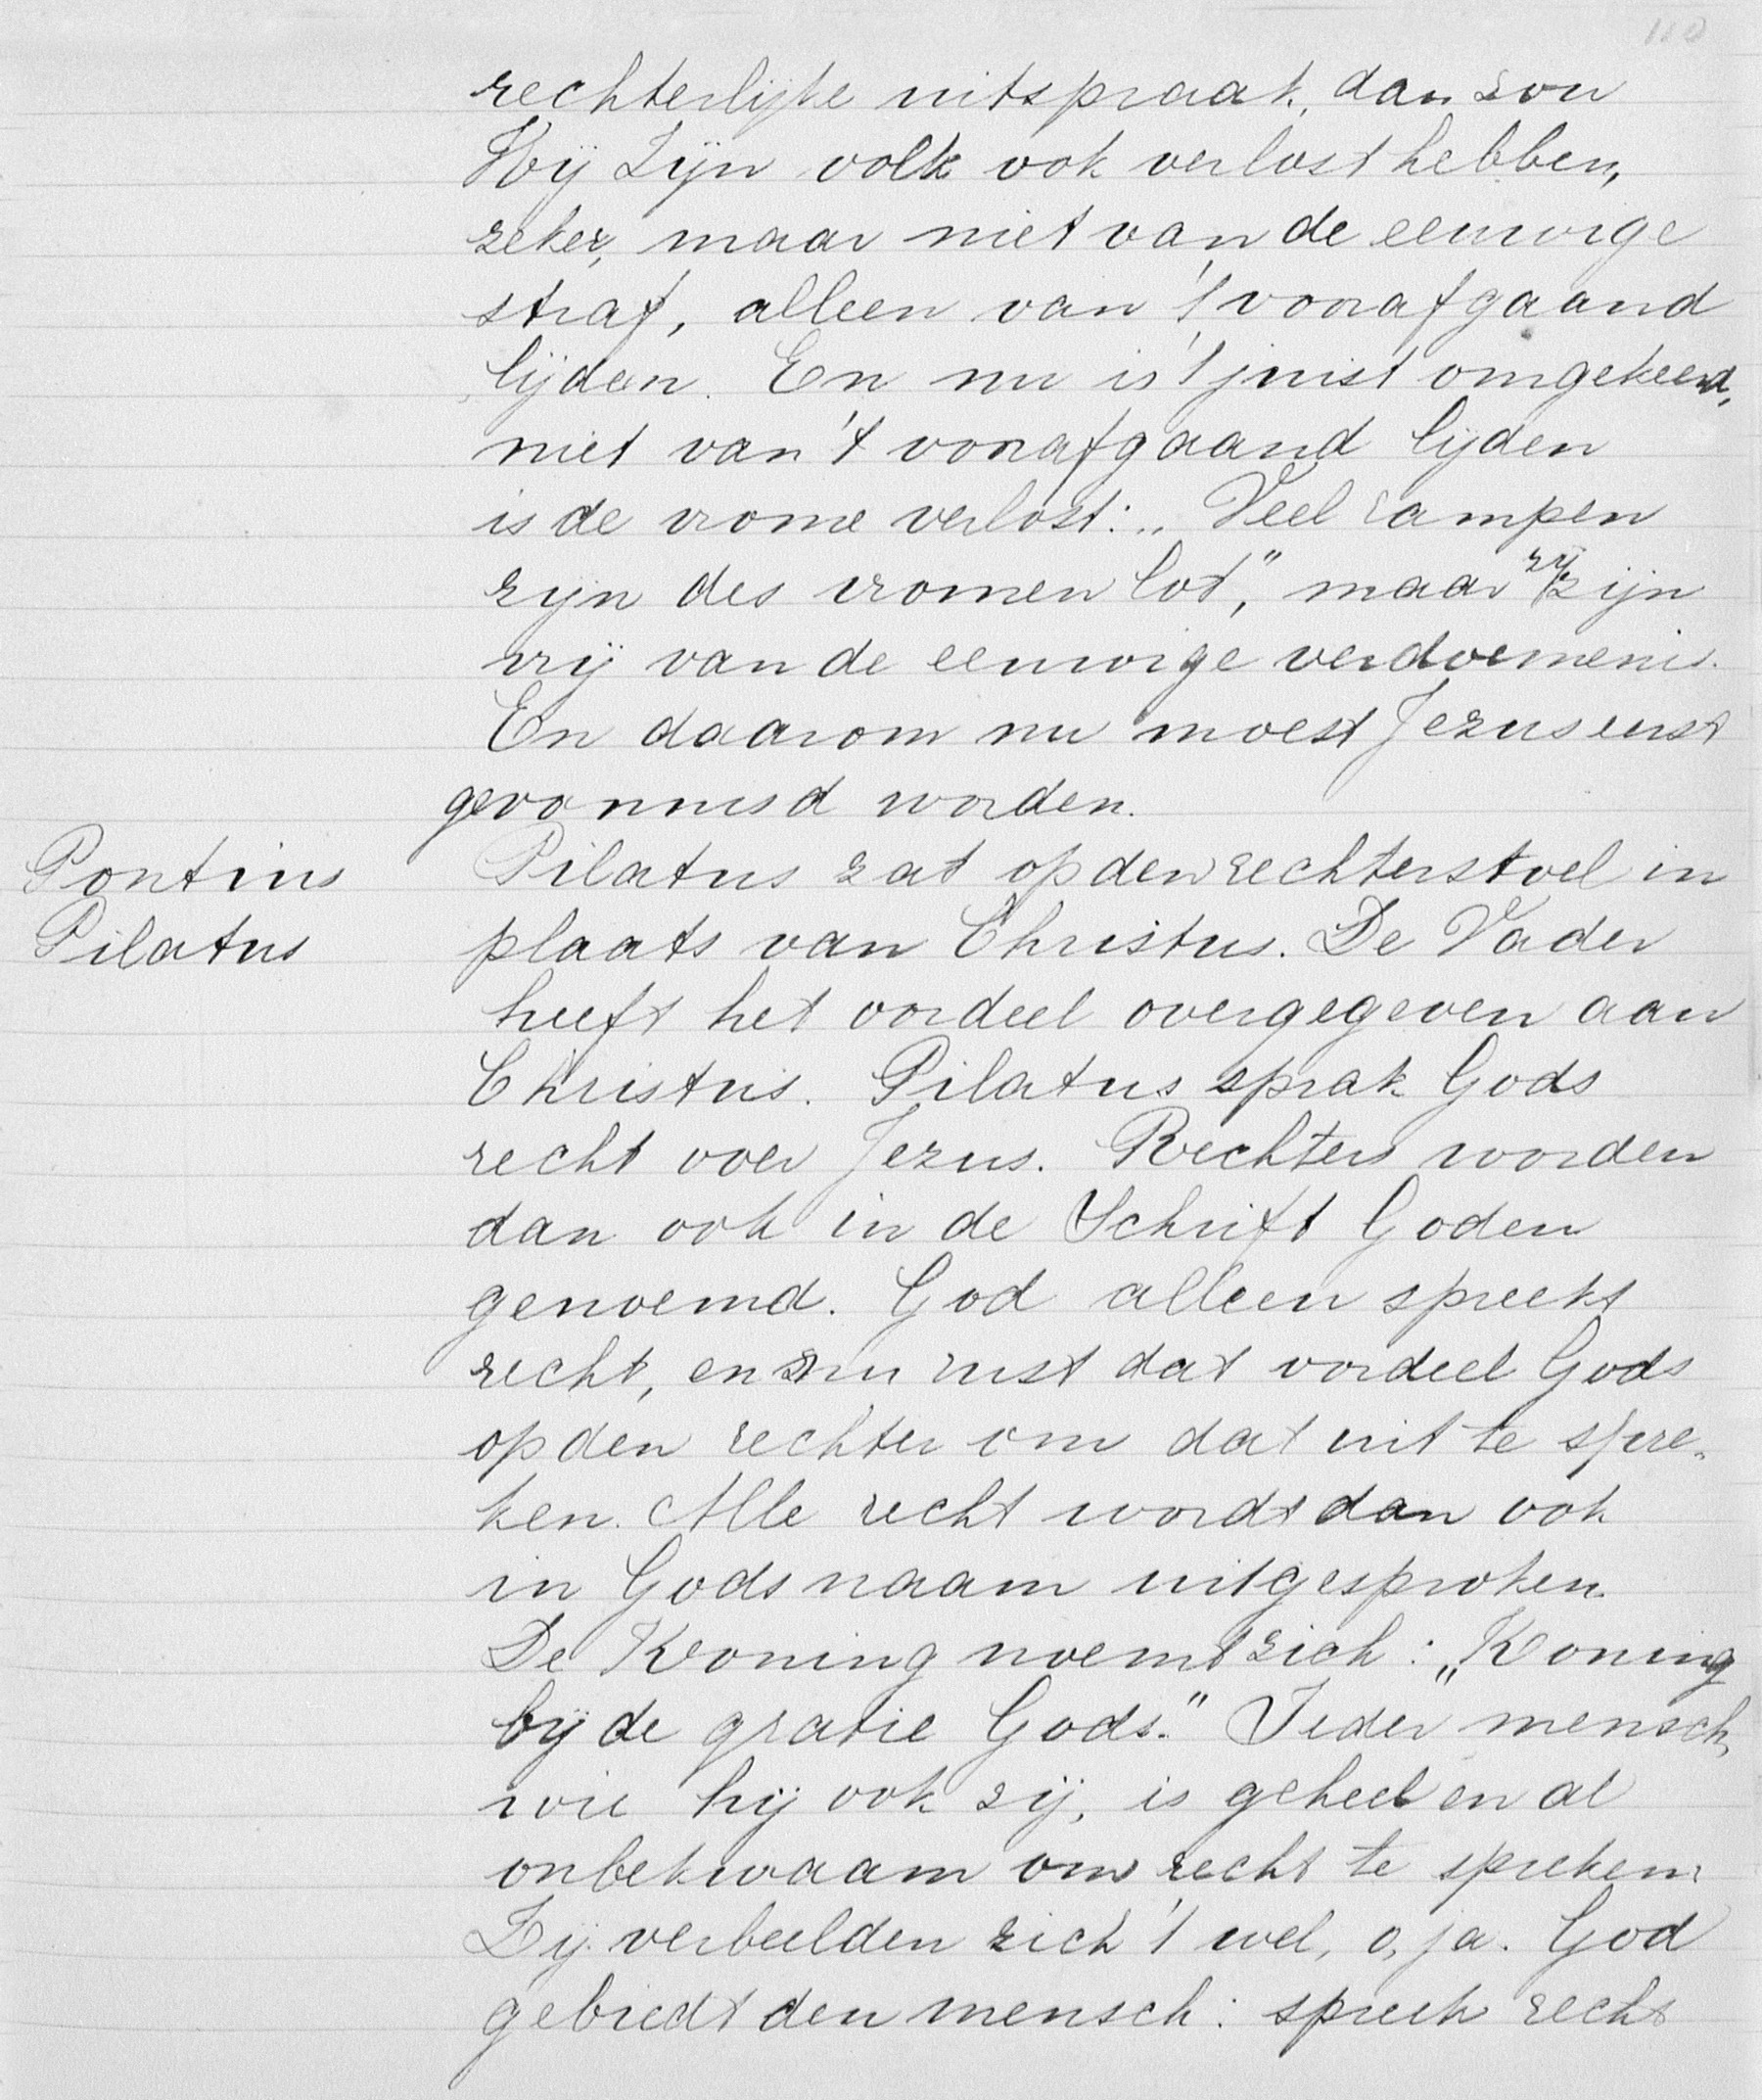 110
rechterlijke uitspraak, dan zou
Hij Zijn volk ook verlost hebben,
zeker, maar niet van de eeuwige
straf, alleen van 't voorafgaand
lijden. En nu is 't juist omgekeerd,
niet van 't voorafgaand lijden
is de vrome verlost: „Veel rampen
zijn des vromen lot," maar zij zijn
vrij van de eeuwige verdoemenis.
En daarom nu moest Jezus eerst
gevonnisd worden.
Pontius
Pilatus
Pilatus zat op den rechterstoel in
plaats van Christus. De Vader
heeft het oordeel overgegeven aan
Christus. Pilatus sprak Gods
recht over Jezus. Rechters worden
dan ook in de Schrift Goden
genoemd. God alleen spreekt
recht, en nu rust dat oordeel Gods
op den rechter om dat uit te spre-
ken. Alle recht wordt dan ook
in Gods naam uitgesproken.
De Koning noemt zich: „Koning
bij de gratie Gods." Ieder mensch,
wie hij ook zij, is geheel en al
onbekwaam om recht te spreken.
Zij verbeelden zich 't wel, o, ja. God
gebiedt den mensch: spreek recht